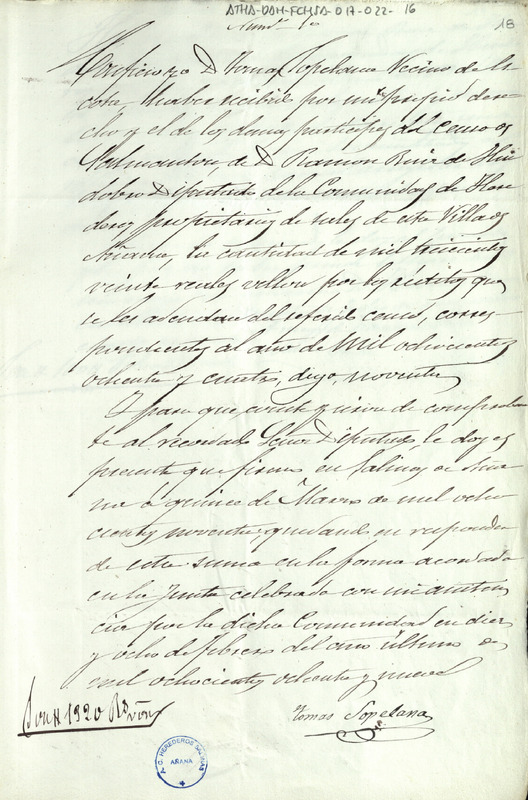 ATHA-DAH-FCHSA-017-022-16
18
Numº 1º
Certifico yo D. Tomas Sopelana Vecino de la
cota haber recibido por mi propio dere-
cho y el de los demas participes del censo de
Salmanton, de D. Ramon Ruiz de Hui
dobro Diputado de la Comunidad de Here
deros propietarios de sales de esta Villa de
Añana, la cantidad de mil trescientos
veinte reales vellon por los réditos que
se les adeudare del referido censo, corres
pondientes al año de mil ochocientos
ochenta y cuatro, digo, noventa
Y para que conste y sirva de comproban
te al recordado Señor Diputado, le doy el
presente que firmo en Salinas de Aña
na a quince de Marzo de mil ocho
cientos noventa; quedando en responder
de esta suma en la forma acordada
en la Junta celebrada con mi asisten
cia por la dicha Comunidad en diez
y ocho de febrero del año último de
mil ochocientos ochenta y nueve
Son 1920 Rs von
Tomas Sopelana
C. HEREDEROS SALINAS
AÑANA